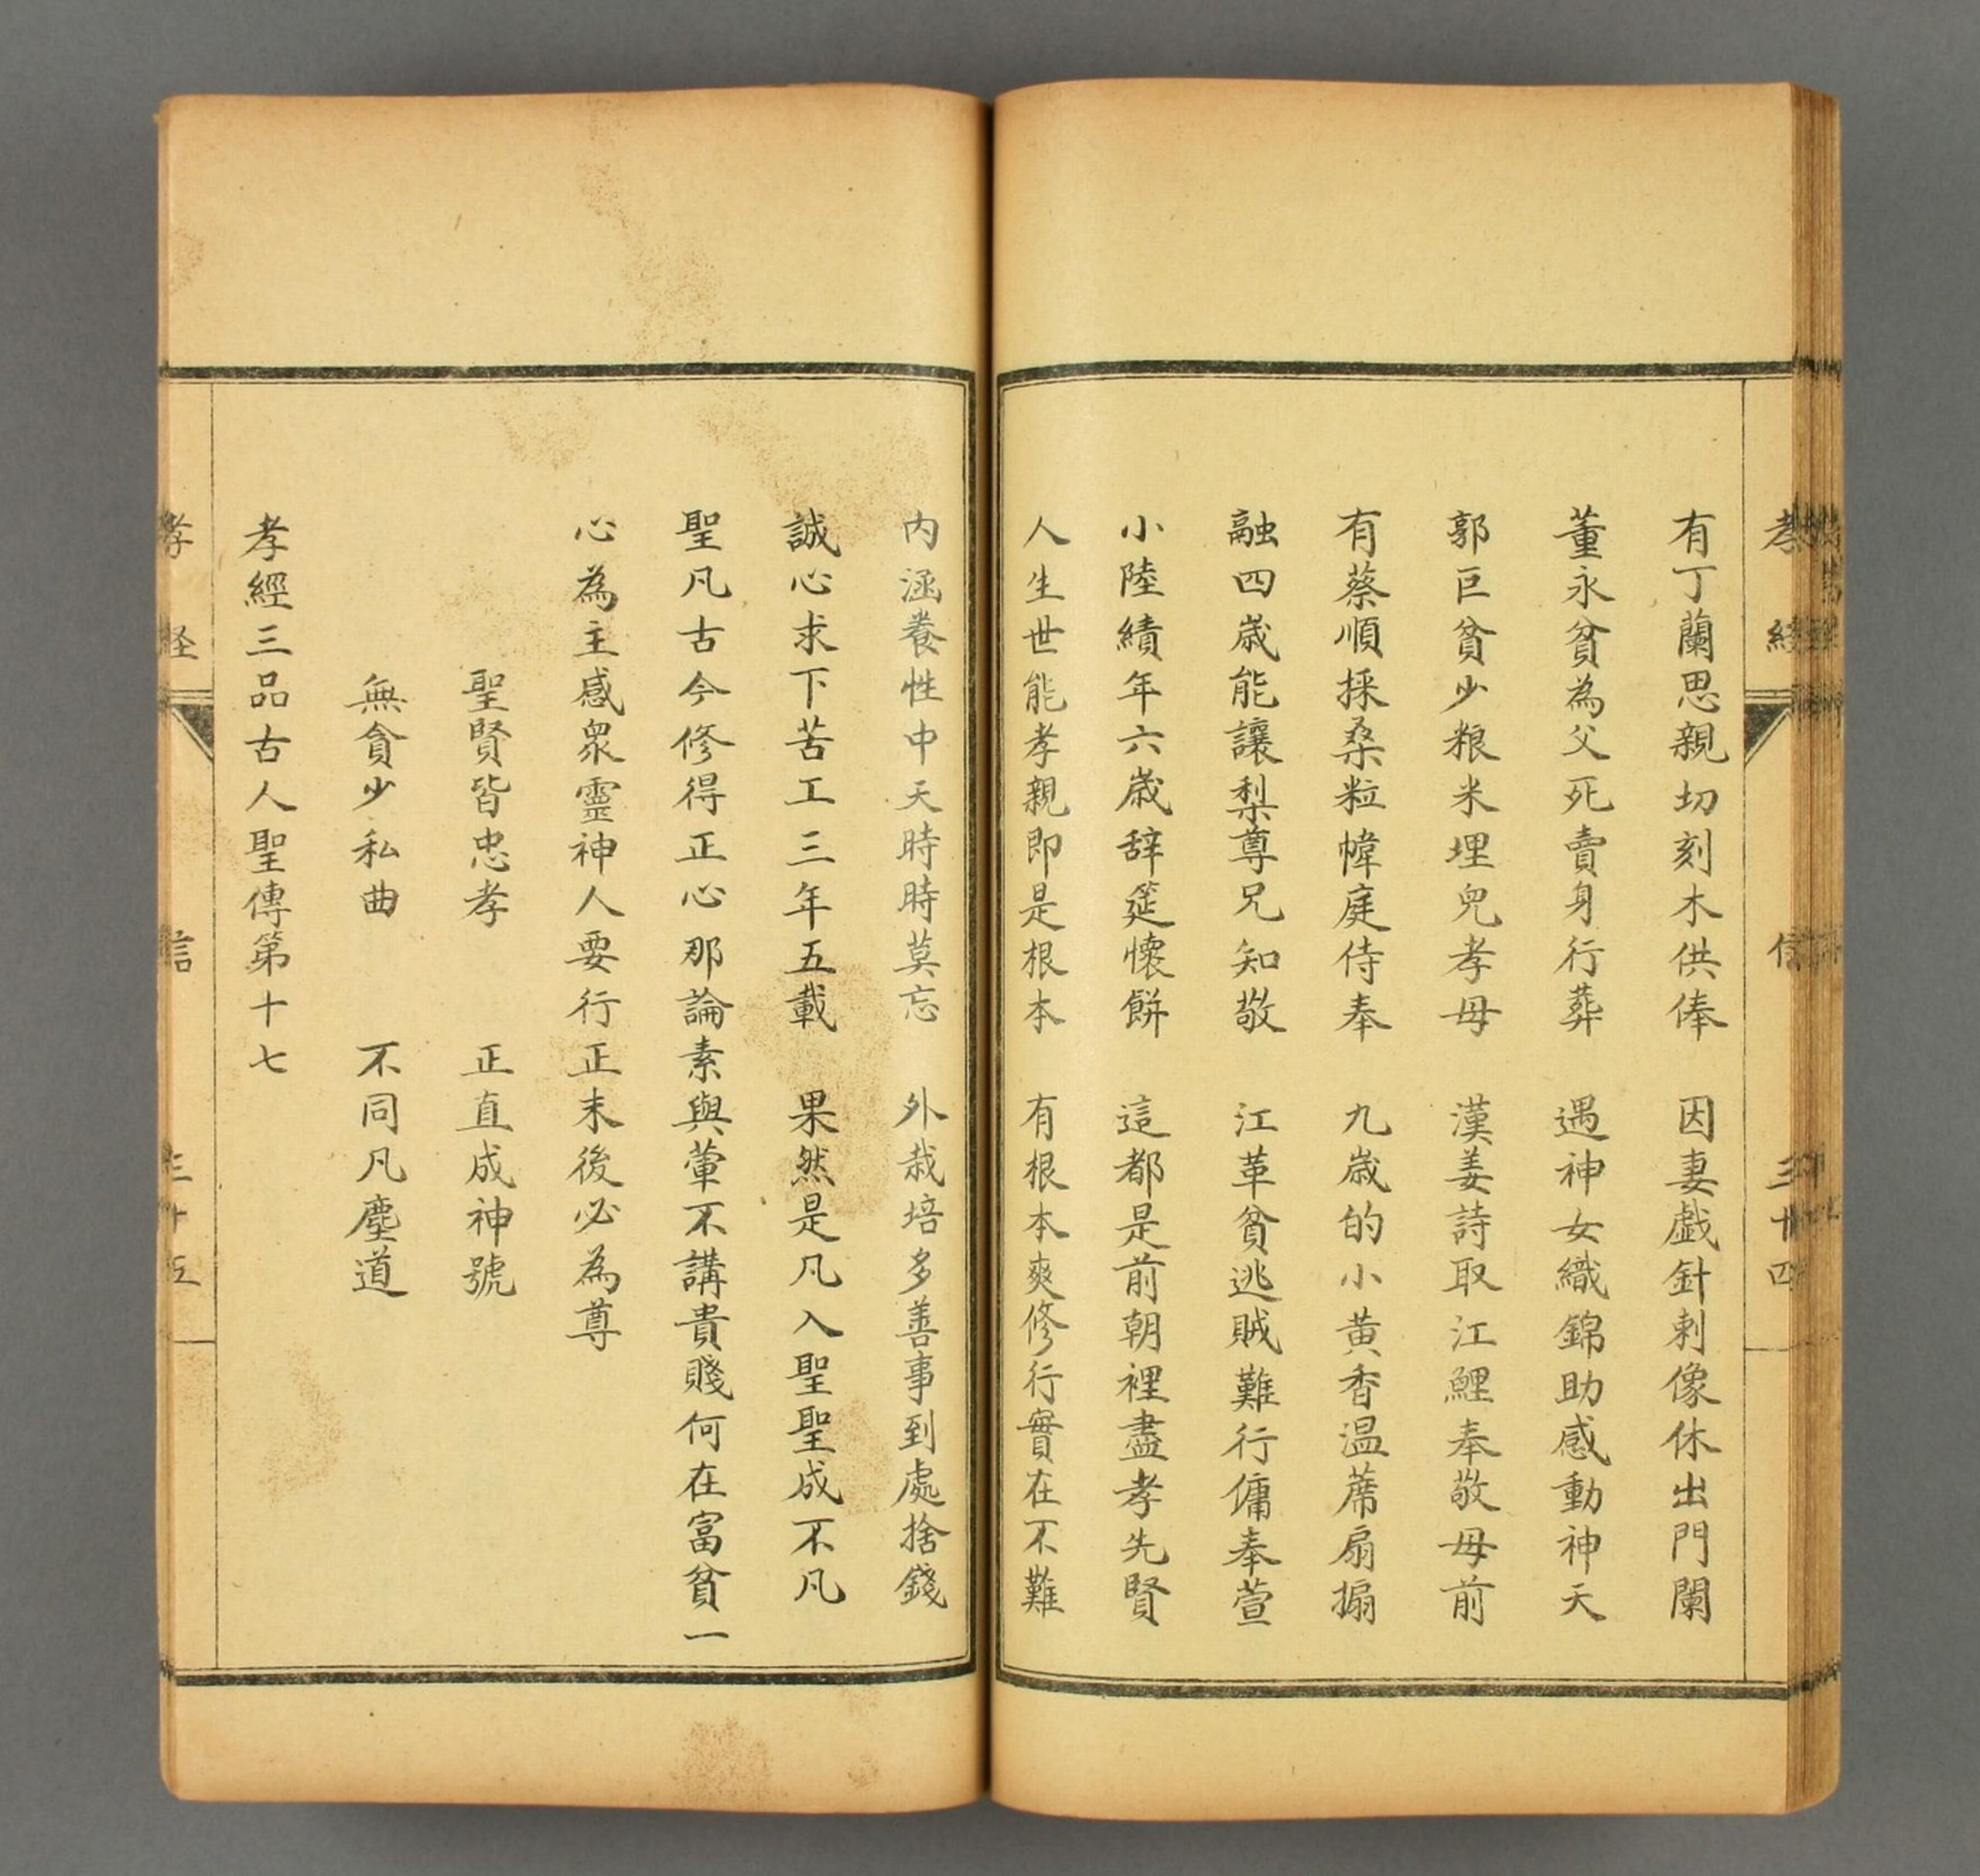 有丁蘭思親切刻木供俸　因妻戯針刺像休出門闌
董永貧為父死賣身行葬　遇神女織錦助感動神天
郭巨貧少粮米埋兒孝母　漢姜詩取江鯉奉敬母前
有蔡順採桑粒幃庭侍奉　九歳的小黄香温蓆扇搧
融四歳能讓梨尊兄知敬　江革貧逃賊難行傭奉萱
小陸績年六歳辞筵懷餅　這都是前朝裡盡孝先賢
人生世能孝親即是根本　有根本爽修行實在不難
内涵養性中天時時莫忘　外栽培多善事到處捨錢
誠心求下苦工三年五載　果然是凡入聖聖成不凡
聖凡古今修得正心那論素與葷不講貴賤何在富貧一
心為主感衆靈神人要行正末後必為尊
聖賢皆忠孝　正直成神號
無貪少私曲　不同凡塵道
孝經三品古人聖傳第十七
孝経　信　三十五